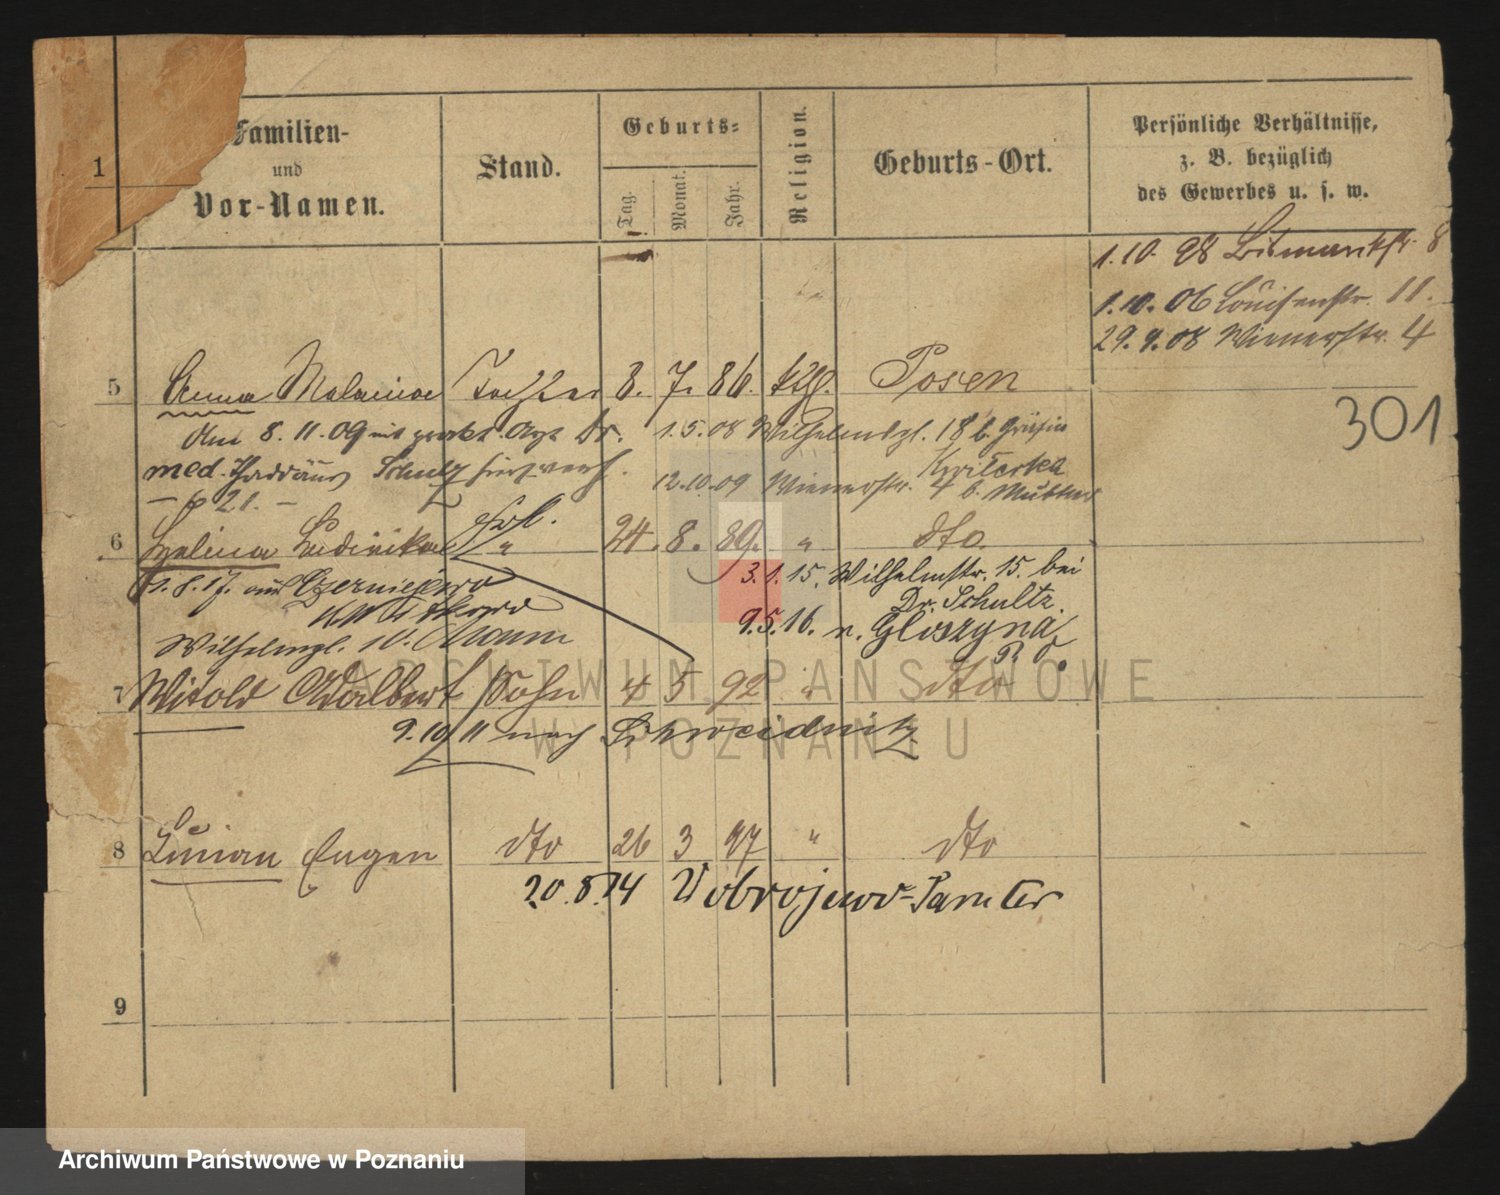 1
Familien-
und
Vor-Namen.
Stand.
Geburts-
Tag.
Monat.
Jahr.
Religion.
Geburts-Ort.
Persönliche Verhältnisse,
z. B. bezüglich
des Gewerbes u. s. w.
1.10. 98 Bismarckstr. 8
1.10. 06 Louisenstr. 11.
29. 9. 08 Wienerstr. 4
5 Anna Melanie Tochter 8. 7. 86. kth. Posen
301
Am 8. 11. 09 mit prakt. Arzt Dr.
med. Thaddäus Schulz hier verh.
1.5.08 Wilhelmspl. 18 b. Gräfin
Kwilecka
12.10.09 Wienerstr. 4 b. Mutter
6 Halina Ludwika " 24. 8. 89. " dto.
3.1.15. Wilhelmstr. 15. bei
Dr. Schultz.
1.8.17. aus Czerniejewo
Kr. Witkowo
9.5.16. n. Gloszyna
Wilhelmspl. 10.
7 Witold Adalbert Sohn 4 5 92 " dto
9.10 11 nach Schweidnitz
8 Lucian Eugen dto 26 3 97 " dto
20.8.14 Dobrojewo-Samter
9
ARCHIWUM PAŃSTWOWE
W POZNANIU
Archiwum Państwowe w Poznaniu